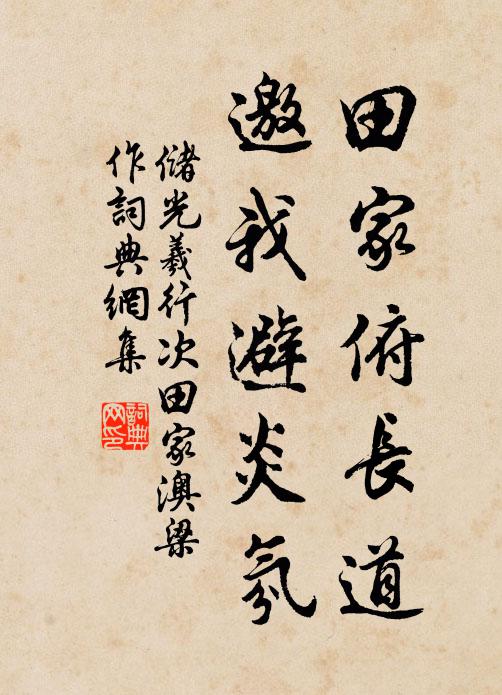 田家俯長道
邀我避炎氛
儲光羲行次田家澳梁
作詞典網集
詞典
网印